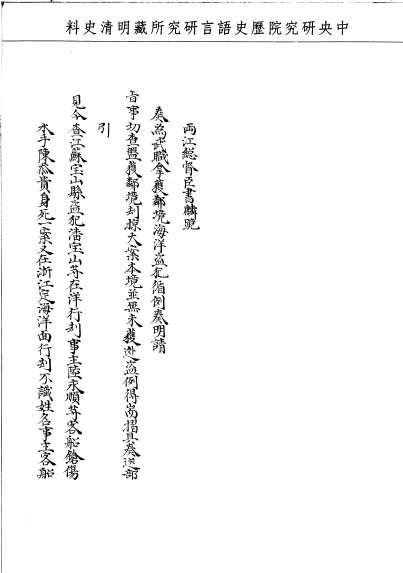 中央研究院歷史語言研究所藏明清史料
兩江總督臣書麟跪
奏為武職拿獲鄰境海洋盜犯循例奏明請
旨事切查盤獲鄰境刦掠大案本境並無未獲逃盜例得耑摺具奏送部
引
見今查江蘇宝山縣盜犯潘宝山等在洋行刦事主陸永順等客船鎗傷
水手陳恭貴身死一案又在浙江定海洋面行刦不識姓名事主客船